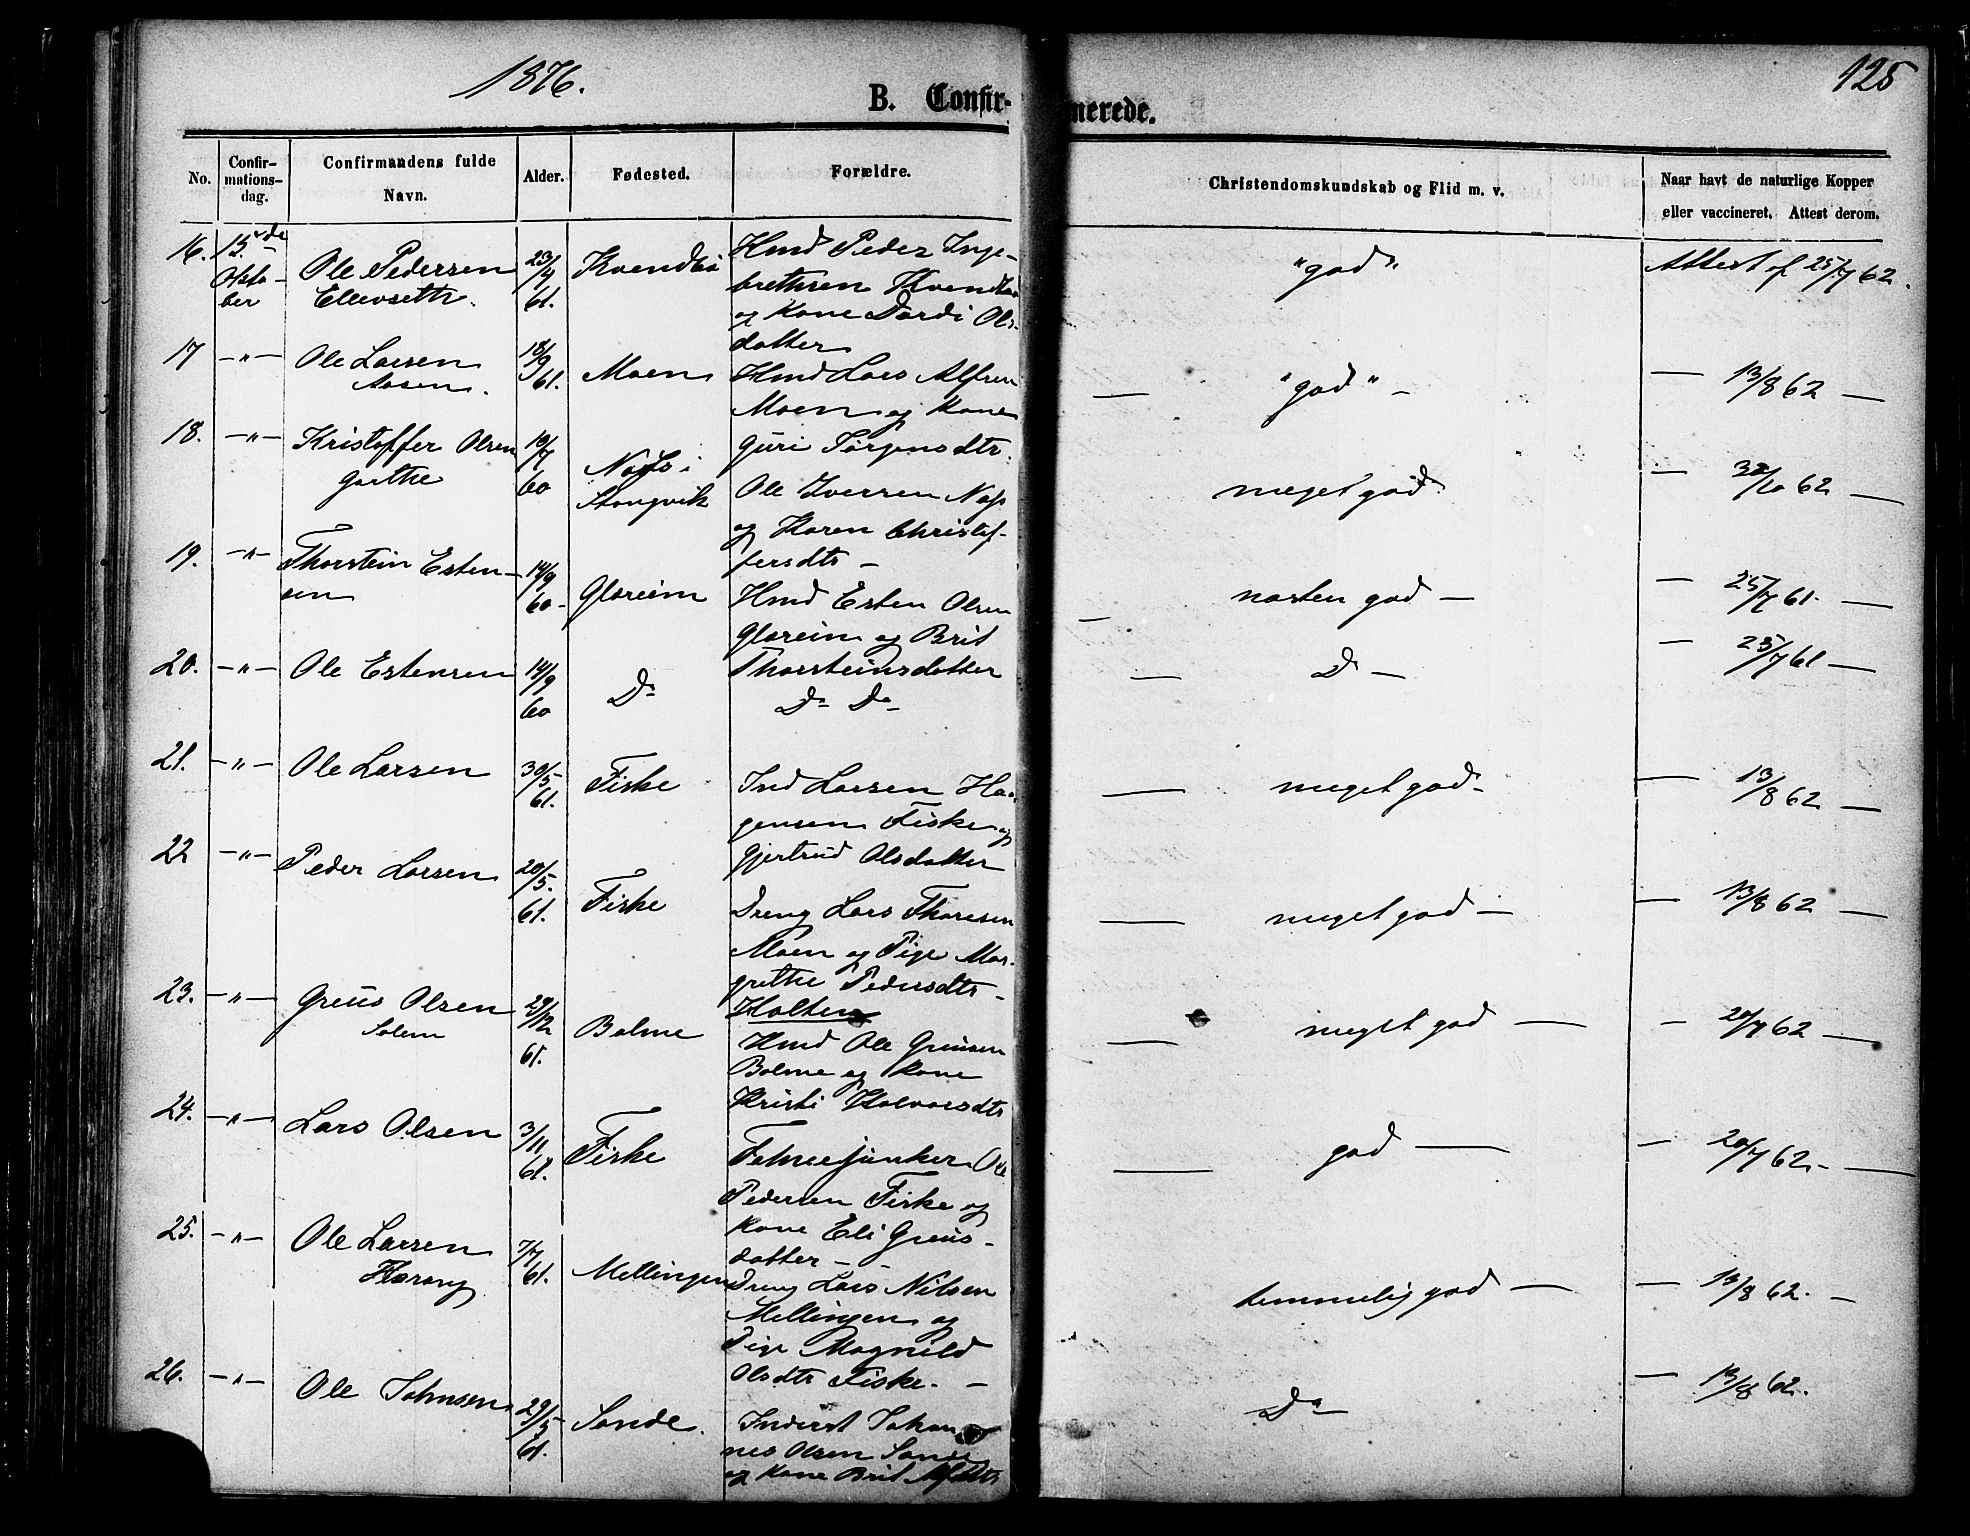 1876.
125
B. Confir-
merede.
No.
Confir-
mations-
dag.
Confirmandens fulde
Navn.
Alder.
Fødested.
Forældre.
Christendomskundskab og Flid m. v.
Naar havt de naturlige Kopper
eller vaccineret. Attest derom.
16. 15.de Octo-ber Ole Pedersen Ellevseth. 23/4 61. Hmd Peder Inge-
brethsen
og Kone Dordi Ols-
datter
"god" Attest af 25/7 62.
17 —"— Ole Larsen Aasen. 18/9 61. Moen Hmd Lars Alfsen
Moen og Kone
Guri Jørgensdtr.
— "god" — — 13/8 62 —
18. —"— Kristoffer Olsen 10/7 60 i Stangvik
Ole Iversen
og Karen Christof-
fersdtr —
meget god — /10 62 —
19. —"— Thorstein Esten-
sen 14/9 60- Glæreim Hmd Esten Olsen
Glæreim og Brit
Thorsteinsdatter
— næsten god — — 25/7 61. —
20. —"— Ole Estensen 14/9 60 Do Do Do
— Do — — 25/7 61 —
21. —"— Ole Larsen 30/5 61. Fiske Ind Larsen Haa-
gensen Fiske og
Gjertrud Olsdatter
— meget god — 13/8 62 —
22 —"— Peder Larsen 20/5. 61. Fiske Dreng Lars Thoresen
Moen og Pige Mar-
grethe Pedersdtr -
Holten
— meget god — — 13/8 62 —
23. —"— Greus Olsen Solem 29/12 61. Bolme Hmd Ole Greusen
Bolme og Kone
Kristi Halvorsdtr
— meget god — — 20/7 62 —
24. —"— Lars Olsen 3/11 61. Fiske Ole
Pedersen Fiske og
Kone Eli Greus-
datter —
— god — — 20/7 62. —
25. —"— Ole Larsen Harang 7/7 61. Mellingen Dreng Lars Nilsen
Mellingen og
Pige Magnild
Olsdtr Fiske. —
temmelig god — — 13/8 62. —
26. —"— Ole Johnsen 29/5 61. Sande. Inderst Johan-
nes Olsen Sande
og Kone Brit
Do — 13/8 62.